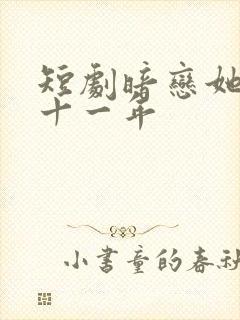 短劇暗戀她
十一年
小書童的春秋